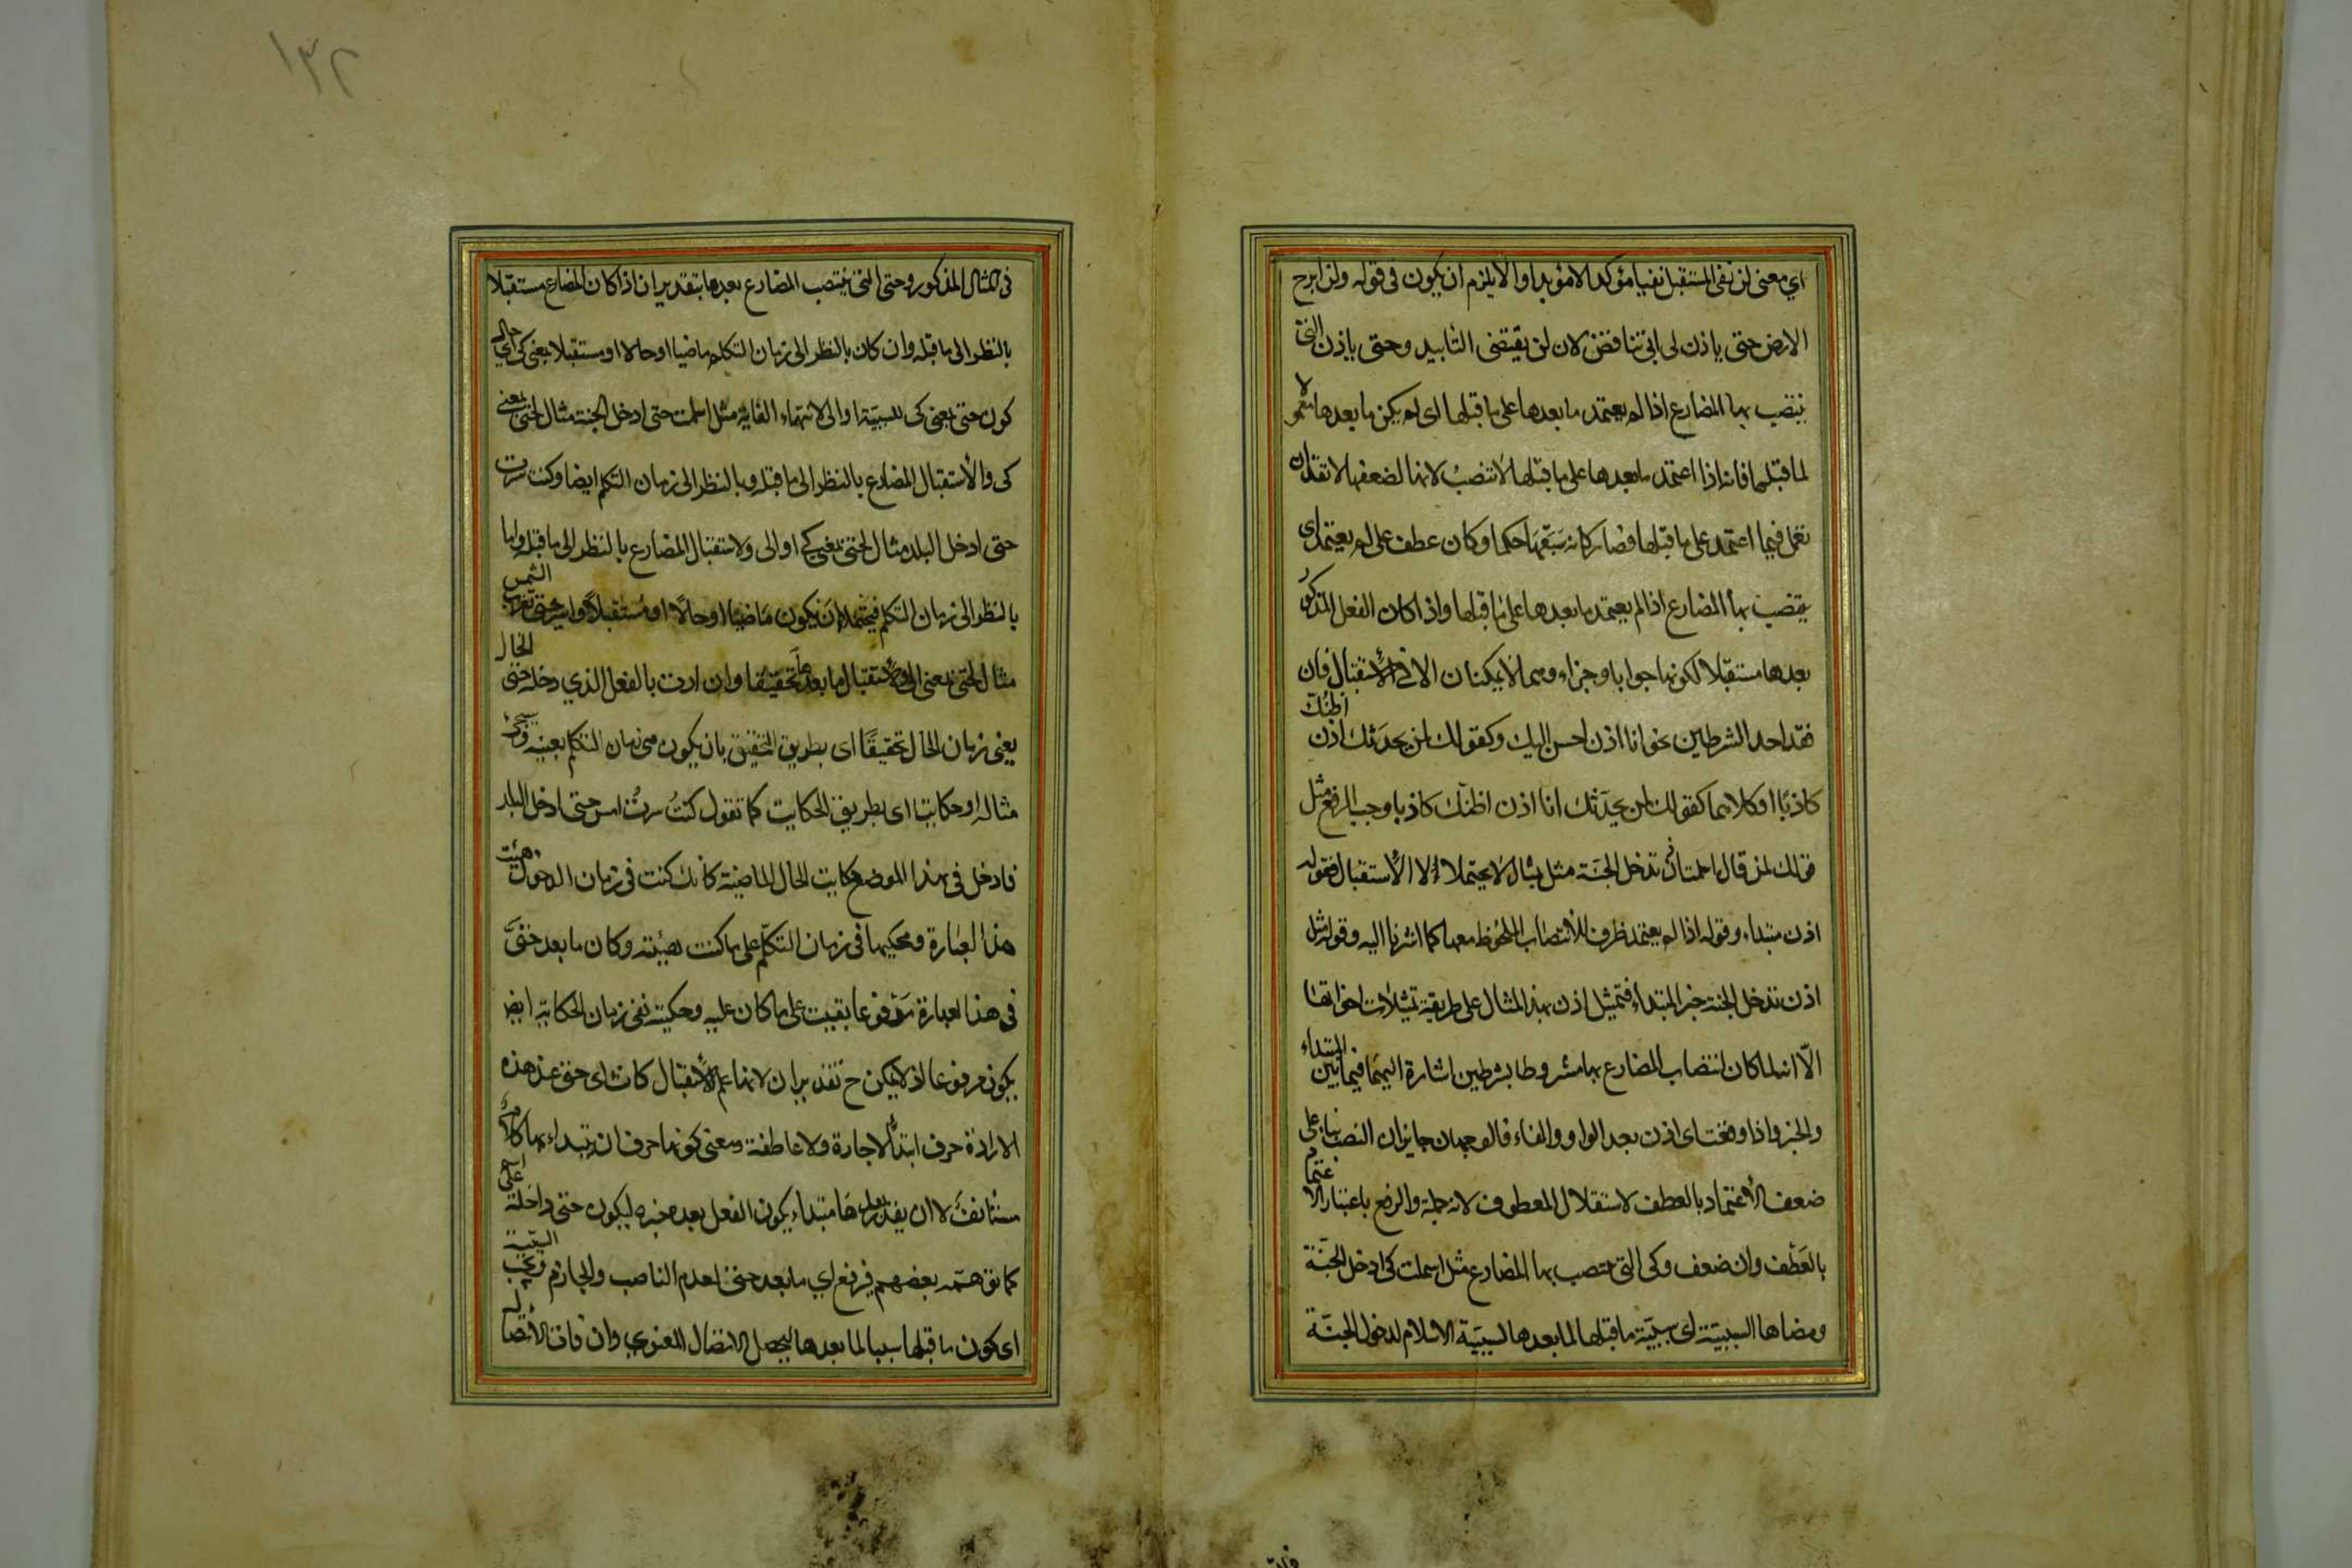 اي معنى لن نفى المستقبل نفيا مؤكدا لا مؤبدا والا يلزم ان يكون فى قوله ولن ابرح
الارض حتى ياذن لى ابى تناقض لان لن يقتضى التأبيد وحتى ياذن التى
ينتصب بها المضارع اذا لم يعتمد ما بعدها على ما قبلها اى لم يكن ما بعدها معمولا
لما قبلها فانه اذا اعتمد ما بعدها على ما قبلها لا تنصب لانها لضعفها لا تقدر ان
تعمل فيما اعتمد على ما قبلها فصار كانه سبقها حكما وكان عطف على لم يعتمد اى
ينتصب بها المضارع اذا لم يعتمد ما بعدها على ما قبلها واذا كان الفعل المذكور
بعدها مستقبلا لكونها جوابا وجزاء وهما لا يمكنان الا فى الاستقبال فان
فقد احد الشرطين نحو انا اذن احسن اليك وكقولك لمن يحدثك اذن اظنك
كاذبا او كلاهما كقولك لمن يحدثك انا اذن اظنك كاذبا وجب الرفع مثل
قولك لمن قال اسلمت اذن تدخل الجنة مثل مثال لا يحتملا الا الاستقبال فقوله
اذن مبتداء وقوله اذا لم يعتمد ظرف للانتصاب الملحوظ معها كما اشرنا اليه وقوله مثل
اذن تدخل الجنة خبر المبتداء فتمثيل اذن بهذا المثال على طريقة تمثيلات اخواتها
الّا انه لما كان انتصاب المضارع بها مشروطا بشرطين اشارة اليهما فيما بين المبتداء
والخبر واذا وقعت اى اذن بعد الواو والفاء فالوجهان جايزان النصب بناء على
ضعف الاعتماد بالعطف لاستقلال المعطوف لانه جملة والرفع باعتبار الاعتماد
بالعطف وان ضعف وكى التى ينتصب بها المضارع مثل اسلمت كى ادخل الجنة
ومضاها السببيّة اى سببيّة ما قبلها لما بعدها لسببيّة الاسلام لدخول الجنة
١٣٢
فى المثال المذكور وحتى التى ينتصب المضارع بعدها بتقدير ان اذا كان المضارع مستقبلا
بالنظر الى ما قبله وان كان بالنظر الى زمان التكلم ماضيا او حالا او مستقبلا بمعنى كى اي حال
كون حتى بمعنى كى للسببيّة او الى لانتهاء الغاية مثل اسلمت حتى ادخل الجنة مثال لحتى بمعنى
كى والاستقبال المضارع بالنظر الى ما قبله وبالنظر الى زمان التكلم ايضا وكنت سرت
حتى ادخل البلد مثال لحتى بمعنى كى او الى ولاستقبال المضارع بالنظر الى ما قبله واما
بالنظر الى زمان التكلم فيحتمل ان يكون ماضيا او حالا او مستقبلا واسير حتى تغرب الشمس
مثال لحتى بمعنى الى ولاستقبال ما بعدها تحقيقا وان اردت بالفعل الذي دخله حتى الحال
يعنى زمان الحال تحقيقا اى بطريق التحقيق بان يكون هى زمان التكلم بعينه
مثاله او حكاية اى بطريق الحكايت كما تقول كنت سرت امس حتى ادخل البلد
فادخل فى هذا الموضع حكايت الحال الماضية كانك كنت فى زمان الدخول هيئت
هذا العبارة وتحكيها فى زمان التكلم على ما كنت هيئته وكان ما بعد حتى
فى هذا العبارة مرفوعا بقيت على ما كان عليه وحكيته ففى زمان الحكاية ايضا
يكون مرفوعا اذ لا يمكن ح تقدير ان لانها علم الاستقبال كانت اى حتى عند هذه
الارادة حرف ابتداء لا جارة ولا عاطفة ومعنى كونها حرف ان يبتداء بها كلام
مستأنف لا ان يقدر بعدها مبتداء يكون الفعل بعده خبره ليكون حتى داخلة على اسم
كما توهمه بعضهم فيرفع اي ما بعد حتى لعدم الناصب والجازم وتجب السببية
اى كون ما قبلها سببا لما بعدها ليحصل الاتصال المعنوي وان فات الاتصال